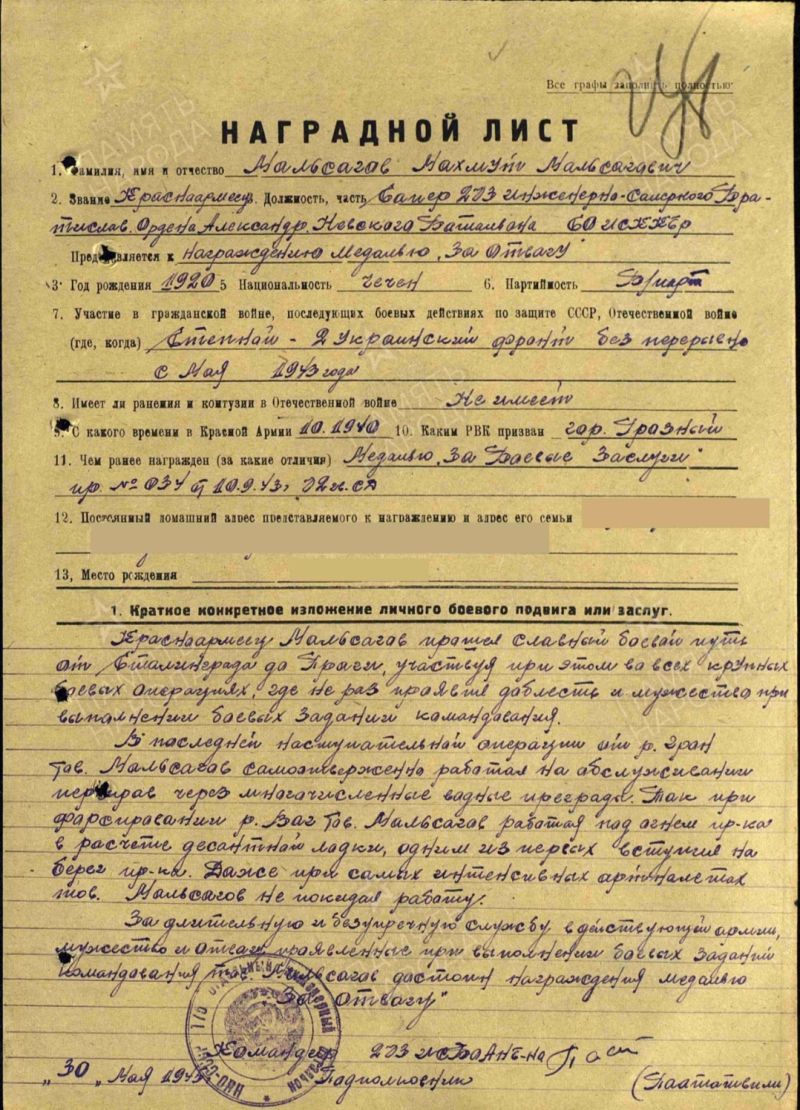 Все графы заполнить полностью
НАГРАДНОЙ ЛИСТ
1. Фамилия, имя и отчество Мальсагов Махмут Мальсагович
2. Звание Красноармеец 3. Должность, часть Сапер 273 инженерно-Саперного Бра-
тислав. Ордена Александр. Невского Баталиона 60 ИСККбр
Представляется к награждению медалью „За отвагу"
3. Год рождения 1920 5 Национальность чечен 6. Партийность
7. Участие в гражданской войне, последующих боевых действиях по защите СССР, Отечественной войне
(где, когда) Степной - 2 Украинский фронт без перерывно
с Мая 1943 года
8. Имеет ли ранения и контузии в Отечественной войне Не имеет
9. С какого времени в Красной Армии 10.1940 10. Каким РВК призван гор. Грозный
11. Чем ранее награжден (за какие отличия) Медалью „За Боевые Заслуги"
пр. № 034 от 10.9.43г. 32 гк.СД
12. Постоянный домашний адрес представляемого к награждению и адрес его семьи
13, Место рождения
1. Краткое конкретное изложение личного боевого подвига или заслуг.
Красноармеец Мальсагов прошел славный боевой путь
от Сталинграда до Праги, участвуя при этом во всех крупных
боевых операциях, где не раз проявил доблесть и мужество при
выполнении боевых заданий командования.
В последней наступательной операции от р. Грон
тов. Мальсагов самоотверженно работал на обслуживании
переправ через многочисленные водные преграды. Так при
форсировании р. Ваг тов. Мальсагов работая под огнем пр-ка
в расчете десантной лодки, одним из первых вступил на
берег пр-ка. Даже при самых интенсивных артналетах
тов. Мальсагов не покидал работу.
За длительную и безупречную службу в действующей армии,
мужество и отвагу проявленные при выполнении боевых заданий
командования тов. Мальсагов достоин награждения медалью
„За отвагу"
Командир 273 исб
„30" Мая 1945г. Подполковник (Пааташвили)